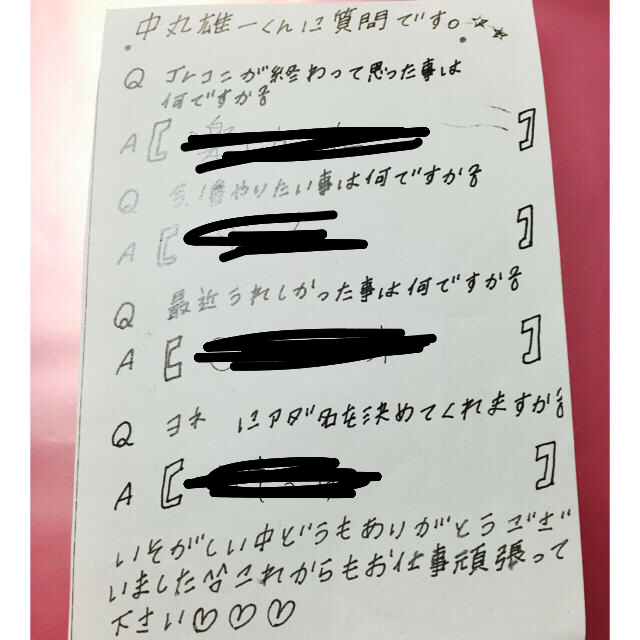 中丸雄一くんに質問です。☆☆
Q Jrコンが終わって思った事は
何ですか?
A【 】
Q 今1番やりたい事は何ですか?
A【 】
Q 最近うれしかった事は何ですか?
A【 】
Q ヨネ にアダ名を決めてくれますか?
A【 】
いそがしい中どうもありがとうござ
いました これからもお仕事頑張って
下さい♡♡♡